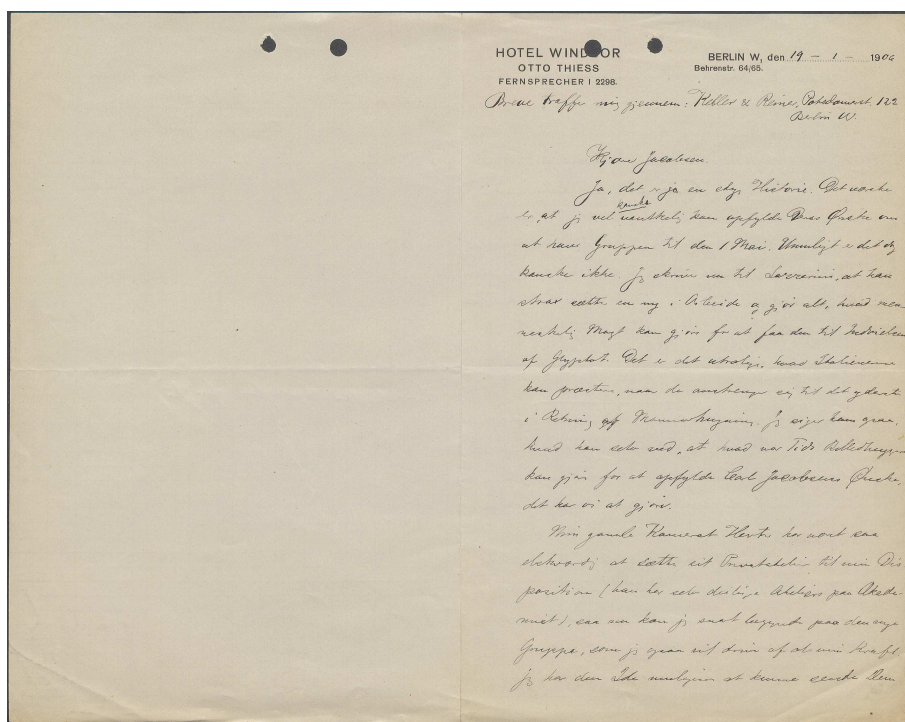 HOTEL WINDSOR
OTTO THIESS
FERNSPRECHER I 2298.
BERLIN W, den 19 – 1 – 1906
Behrenstr. 64/65.
Breve træffer mig gjennem: Keller & Reiner, Potsdamerst. 122
Berlin W.
Hr. Jacobsen.
Ja, det er jo en Historie. Det værste
er, at jeg vel kanske vanskelig kan opfylde Deres Ønske om
at have Gruppen til den 1 Mai. Umuligt er det dog
kanske ikke. Jeg skriver nu til Lazzerini, at han
strax sætter en ny i Arbeide og gjør alt, hvad men-
neskelig Magt kan gjøre for at faa den til Indvielsen
af Glyptot. Det er det utrolige, hvad Italienerne
kan præstere, naar de anstrenger sig til det yderste
i Retning af Marmorhugning. Jeg siger ham
hvad han selv ved, at hvad vor Tids Billedhuggere
kan gjøre for at opfylde Carl Jacobsens Ønske,
det har vi at gjøre.
Min gamle Kamerat Herter har været saa
elskværdig at sætte sit Privatatelier til min Dis
position (han har selv deilige Ateliers paa Akade-
miet), saa nu kan jeg snart begynde paa den nye
Gruppe, som jeg af al min Kraft.
Jeg har den Ide muligens at kunne sende Dem